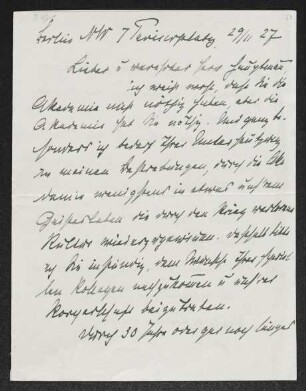 Berlin NW 7 Pariserplatz 29/11 27
Lieber u verehrter Herr Hauptmann
ich weiß wohl, daß Sie die
Akademie nicht nöthig haben, aber die
Akademie hat Sie nöthig. Und ganz be-
sonders ich bedarf Ihres Unterstützung
zu meinen Bestrebungen, durch die Aka-
demie wenigstens in etwas unserm
Geistesleben die durch den Krieg verlorene
Kultur wiederzugewinnen. Deshalb bitte
ich Sie inständig, dem Wunsche Ihrer
Kollegen nachzukommen u unsrer
Körperschaft beizutreten.
Durch 30 Jahre oder gar noch länger